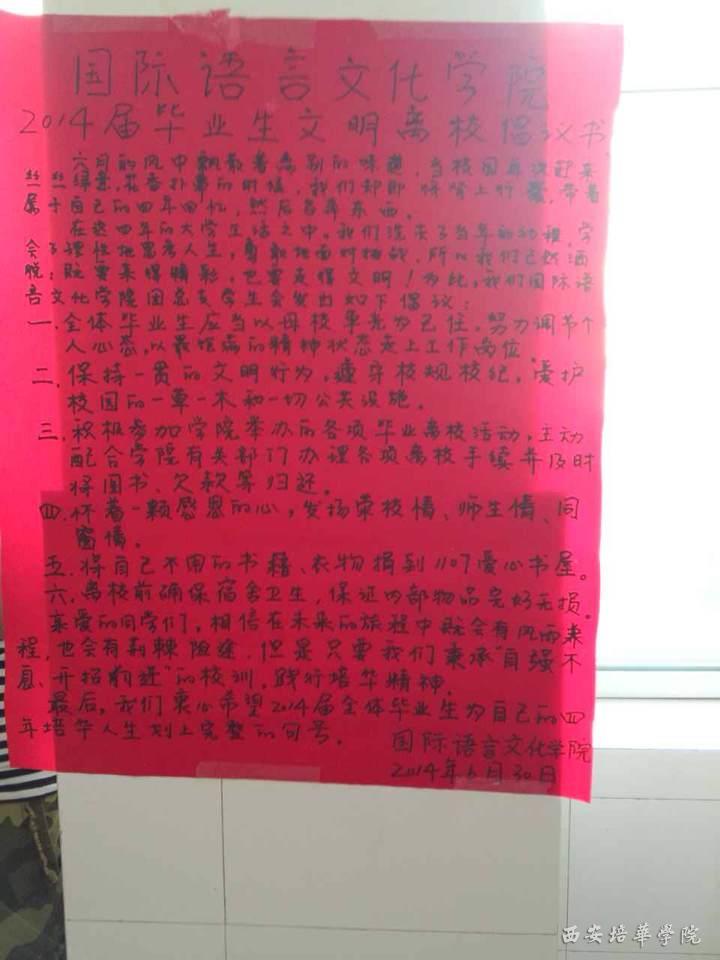 国际语言文化学院
2014届毕业生文明离校倡议书
六月的风中飘散着离别的味道，当校园再次迎来
丝丝绿意，花香扑鼻的时候，我们却即将背上行囊，带着
属于自己的四年回忆，然后各奔东西。
在这四年的大学生活之中，我们洗去了当年的幼稚，学
会了理性地思考人生，勇敢地面对挑战，所以我们已然洒
脱；既要来得精彩，也要走得文明！为此，我们国际语
言文化学院团总支学生会发出如下倡议：
一、全体毕业生应当以母校事光为己任，努力调节个
人心态，以最饱满的精神状态走上工作岗位。
二、保持一贯的文明行为，遵守校规校纪，爱护
校园的一草一木和一切公共设施。
三、积极参加学院举办的各项毕业离校活动，主动
配合学院有关部门办理各项离校手续并及时
将图书、欠款等归还。
四、怀着一颗感恩的心，发扬荣校情、师生情、同
窗情。
五、将自己不用的书籍、衣物捐到1107爱心书屋。
六、离校前确保宿舍卫生，保证内部物品完好无损。
亲爱的同学们，相信在未来的旅程中既会有风雨兼
程，也会有荆棘险途，但是只要我们秉承“自强不
息、开拓前进”的校训，践行培华精神。
最后，我们衷心希望2014届全体毕业生为自己的四
年培华人生划上完整的句号。
国际语言文化学院
2014年6月30日
西安培華學院